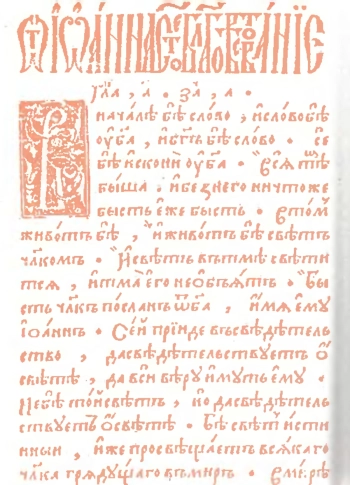 Ѿ іѡанна ст҃ое бл҃говѣствованїе
гл҃а , а҃ • за҃ , а҃ •
В началѣ бѣ сло́во , и҆ сло́во бѣ
ѹ҆ бг҃а , и҆ бг҃ъ бѣ сло́во • се
бѣ и҆скони ѹ҆ бг҃а • всѧ тѣмъ
бы́ша , и҆ без него ничтоже
бысть е҆́же бысть • в то́мъ
живо́тъ бѣ , и҆ живо́тъ бѣ свѣ́тъ
чл҃комъ • И҆ свѣтъ въ тмѣ свѣти
тсѧ , и҆ тма̀ є҆го̀ не ѡ҆бъѧ́тъ • Бы
сть чл҃къ по́сланъ ѿ бг҃а , и҆́мѧ є҆мꙋ
і҆ѡа́ннъ • Се́й прїи́де въ свѣдѣ́тель
ство , да свѣдѣ́тельствꙋетъ ѡ҆
свѣ́тѣ , да всѝ вѣ́рꙋ и҆́мꙋтъ є҆мꙋ •
Не бѣ̀ то́й свѣтъ , но да свѣдѣ́тель
ствꙋетъ ѡ҆ свѣ́тѣ • Бѣ̀ свѣ́тъ и҆́сти
нныи , и҆́же просвѣща́етъ всѧ́каго
чл҃ка грѧдꙋ́щаго въ ми́ръ • в ми́рѣ